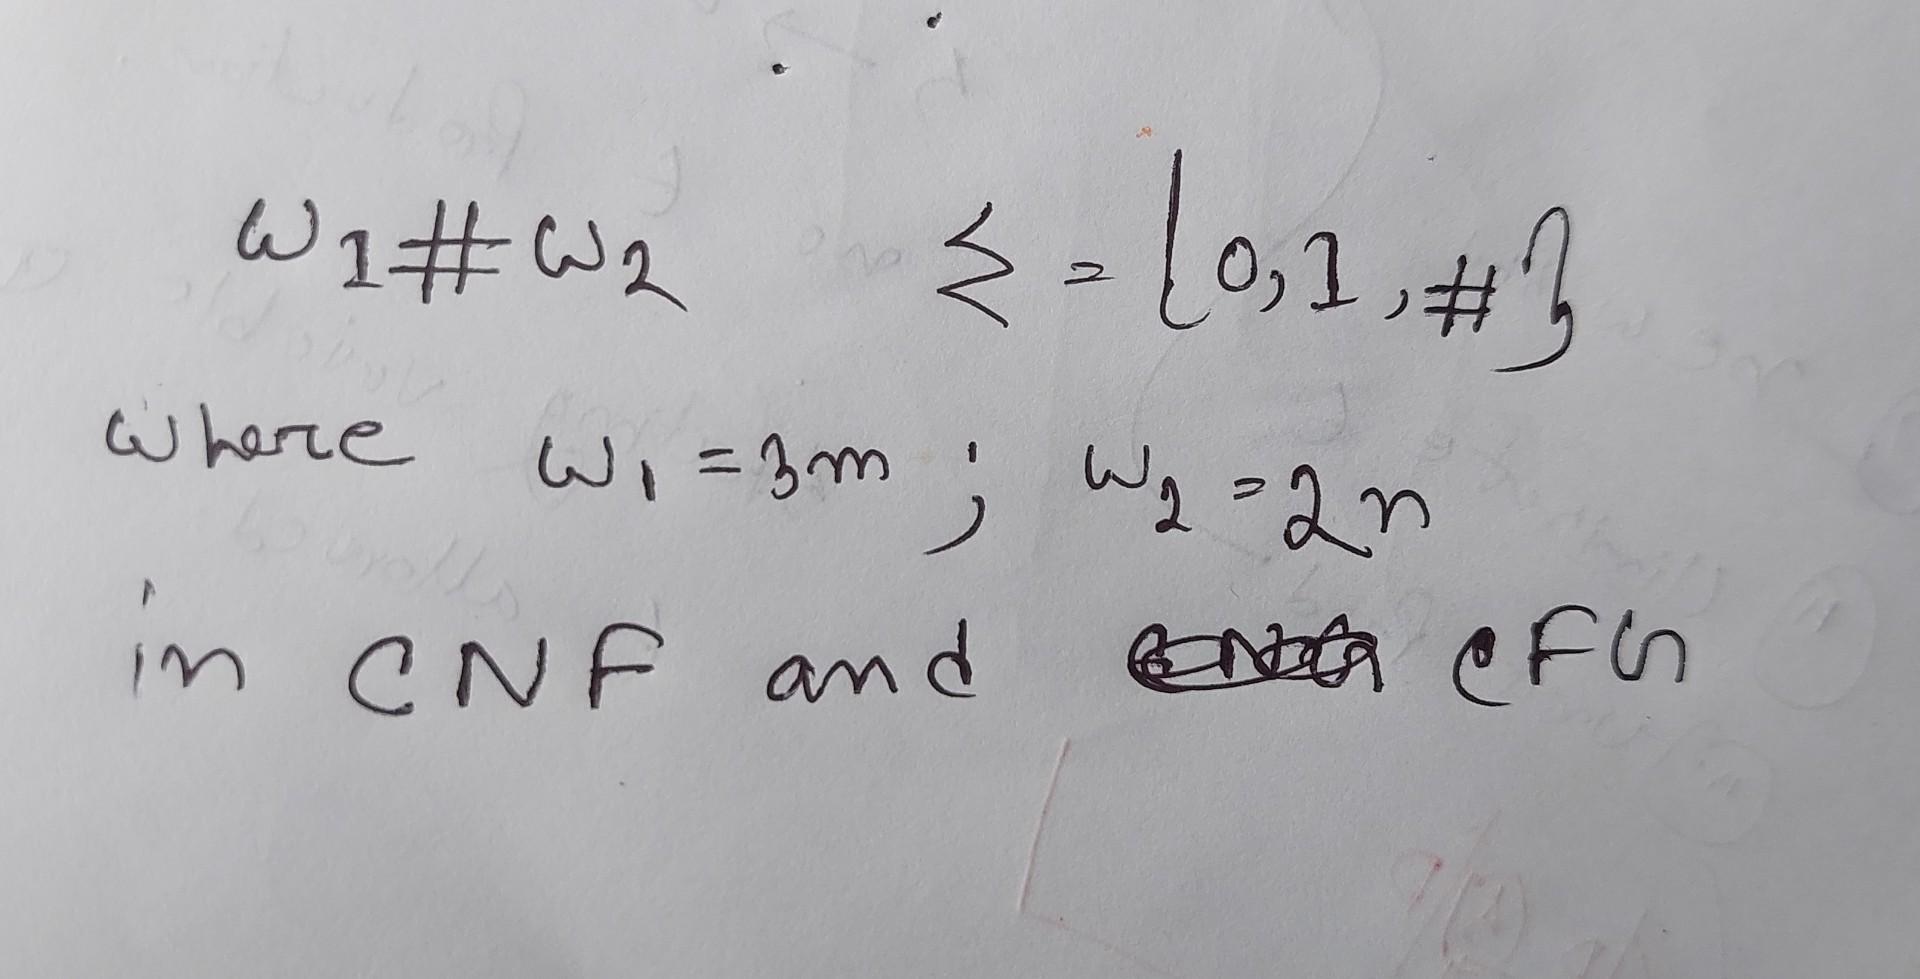 ω1#ω2 Σ = {0,1,#}
where ω1 = 3m ; ω2 = 2n
in CNF and CFG